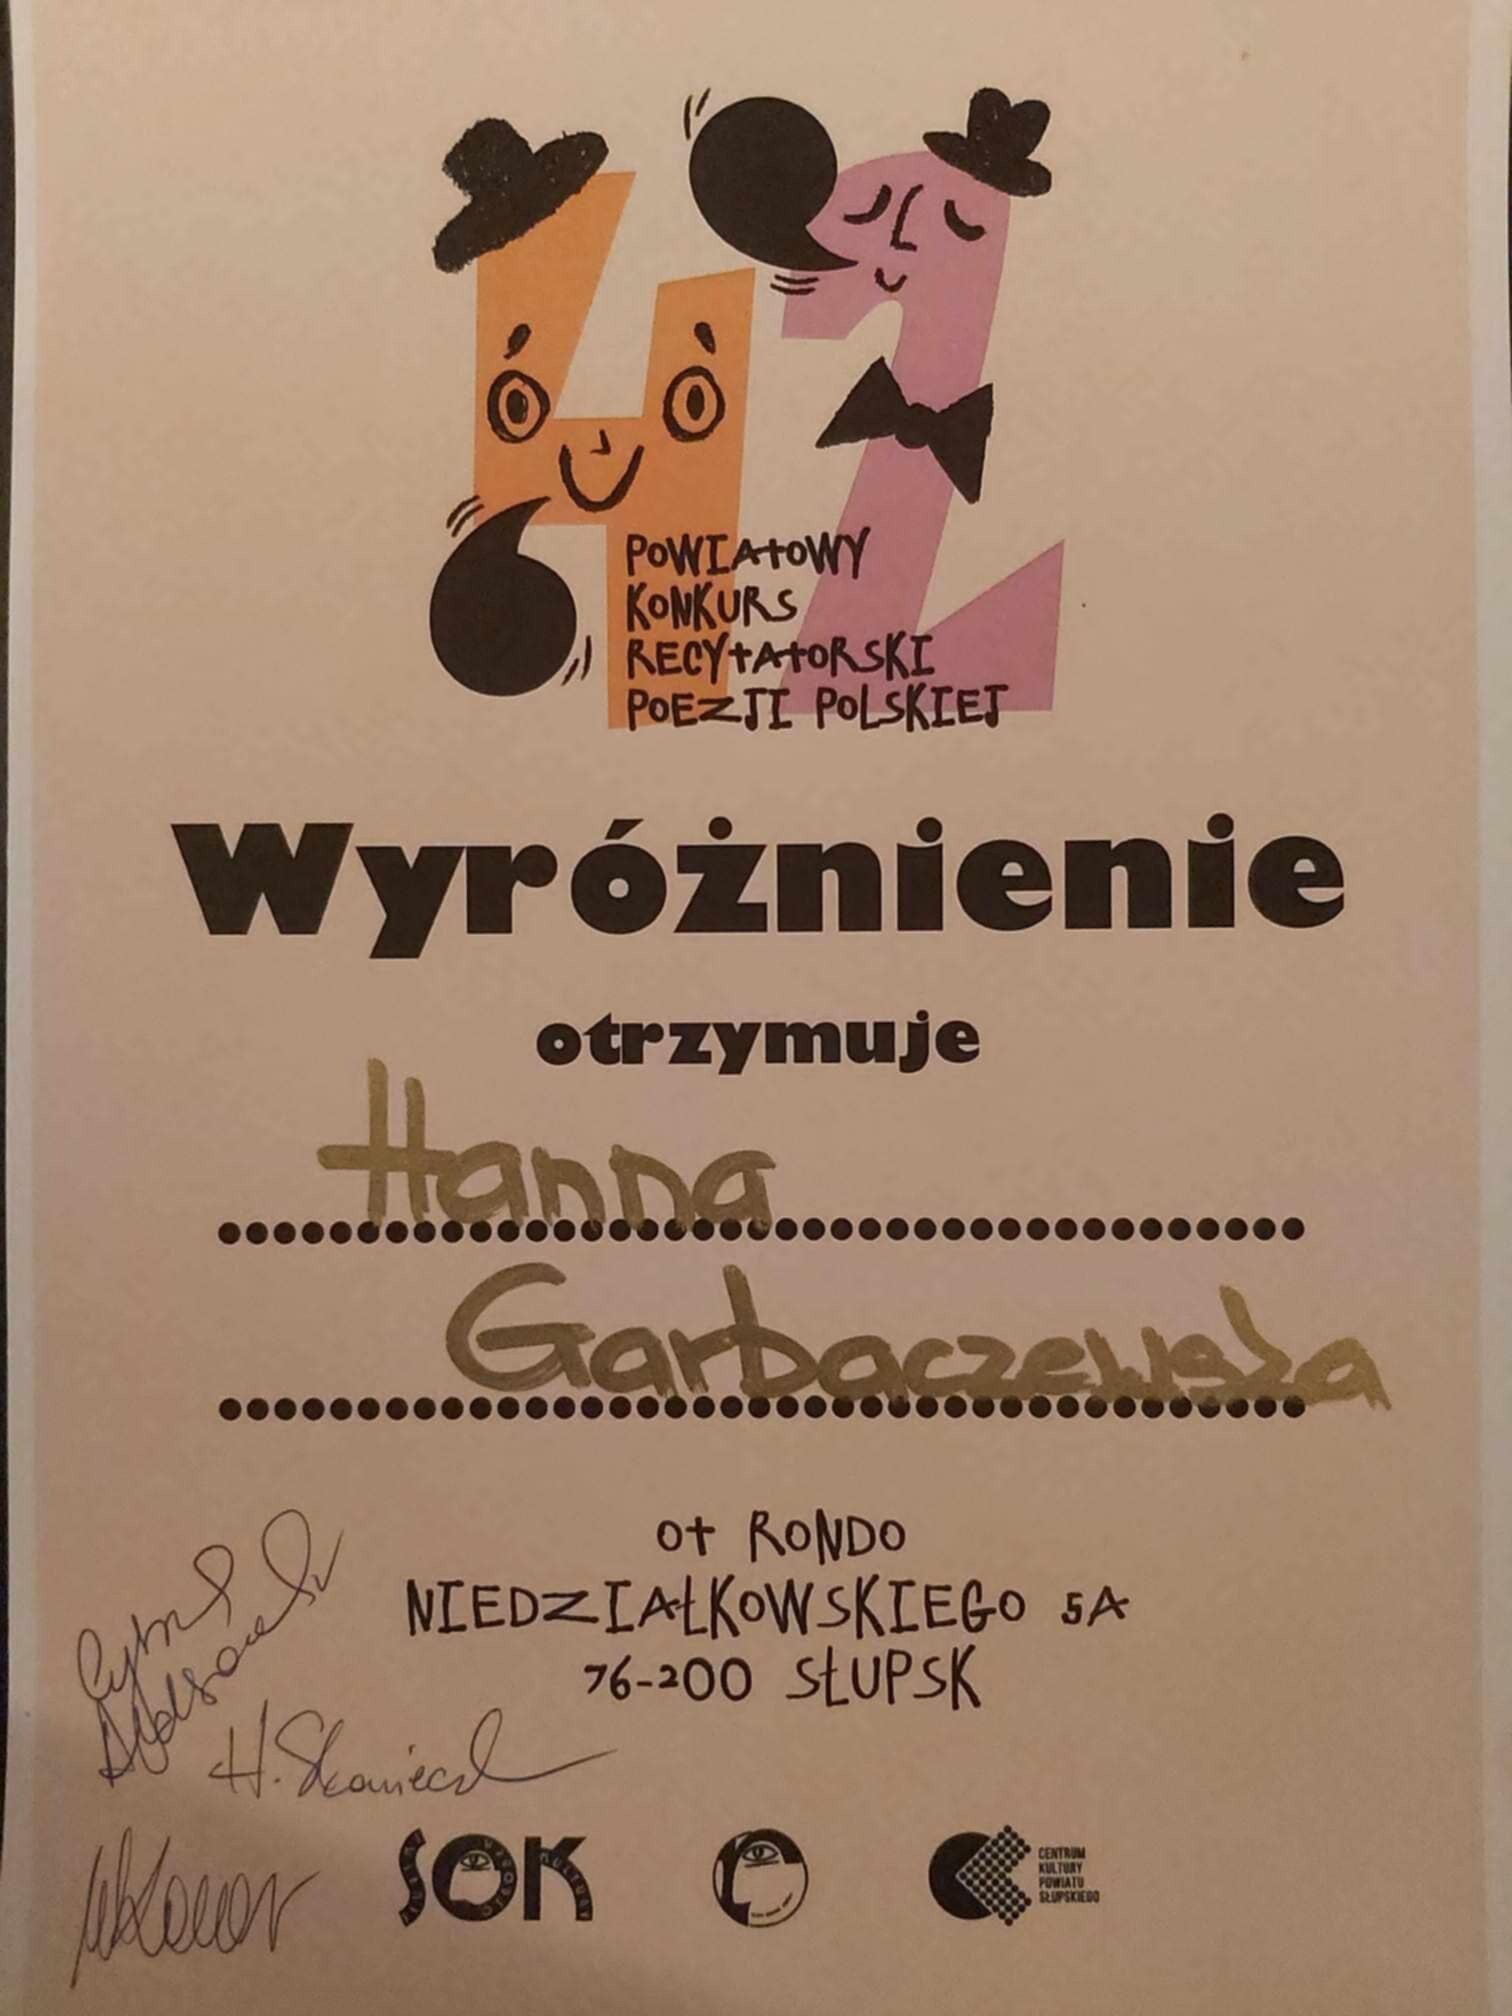 42
POWIATOWY
KONKURS
RECYTATORSKI
POEZJI POLSKIEJ
Wyróżnienie
otrzymuje
Hanna
Garbaczewska
OT RONDO
NIEDZIAŁKOWSKIEGO 5A
76-200 SŁUPSK
H.
SOK
CENTRUM
KULTURY
POWIATU
SŁUPSKIEGO